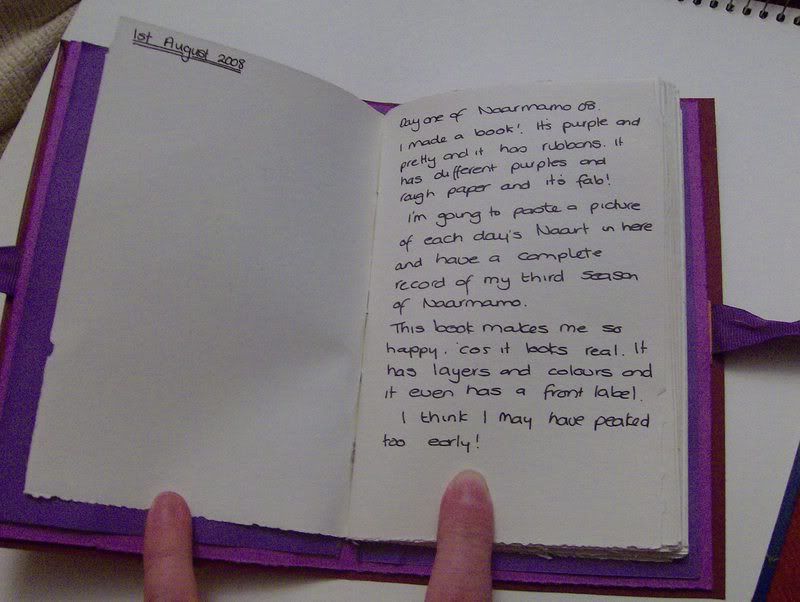 1st August 2008
Day one of Naarmamo 08.
I made a book! It's purple and
pretty and it has rubbons. It
has different purples and
rough paper and it's fab!
I'm going to paste a picture
of each day's Naart in here
and have a complete
record of my third season
of Naarmamo.
This book makes me so
happy. 'cos it looks real. It
has layers and colours and
it even has a front label.
I think I may have peaked
too early!